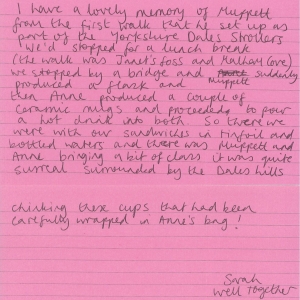 I have a lovely memory of Muppett
from the first walk that he set up as
part of the Yorkshire Dales Strollers
We'd stopped for a lunch break
(the walk was Janet's Foss and Malham Cove)
we stopped by a bridge and suddenly
Muppett
produced a flask and
then Anne produced a couple of
ceramic mugs and proceeded to pour
a hot drink into both. So there we
were with our sandwiches in tinfoil and
bottled waters and there was Muppett and
Anne bringing a bit of class it was quite
surreal surrounded by the Dales hills
chinking these cups that had been
carefully wrapped in Anne's bag!
Sarah
Well Together